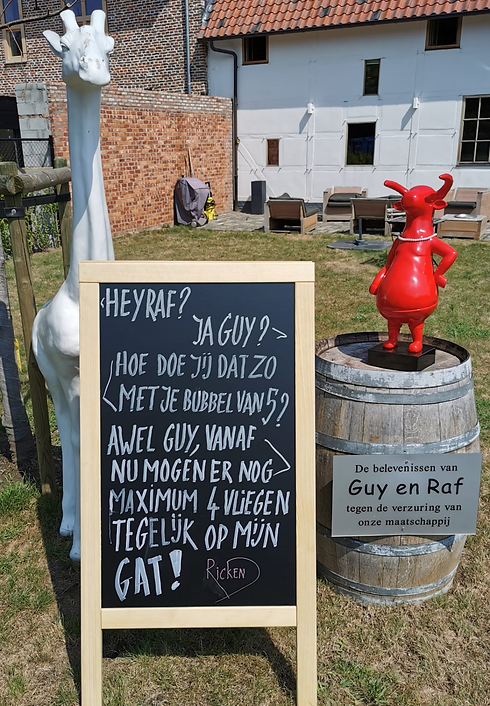 HEY RAF?
JA GUY?
HOE DOE JIJ DAT ZO
MET JE BUBBEL VAN 5?
AWEL GUY, VANAF
NU MOGEN ER NOG
MAXIMUM 4 VLIEGEN
TEGELIJK OP MIJN
GAT!
RICKEN
De belevenissen van
Guy en Raf
tegen de verzuring van
onze maatschappij